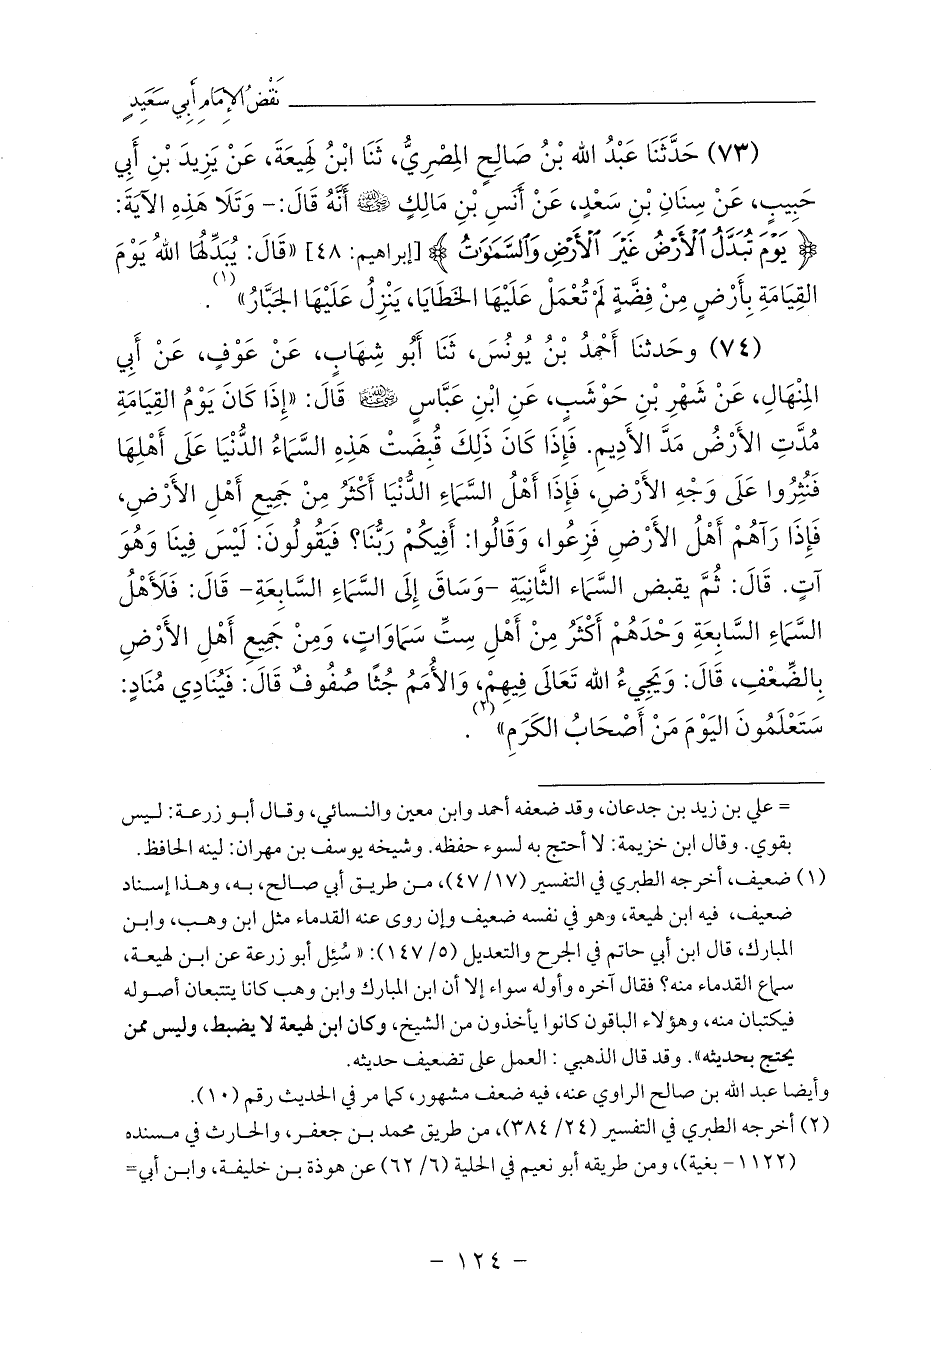 نَقْضُ الإِمَامِ أَبِي سَعِيدٍ
(٧٣) حَدَّثَنَا عَبْدُ الله بْنُ صَالِحٍ المِصْرِيُّ، ثَنَا ابْنُ لَهِيعَةَ، عَنْ يَزِيدَ بْنِ أَبِي
حَبِيبٍ، عَنْ سِنَانِ بْنِ سَعْدٍ، عَنْ أَنَسِ بْنِ مَالِكٍ ﵁ أَنَّهُ قَالَ:- وَتَلَا هَذِهِ الآيَةَ:
﴿ يَوْمَ تُبَدَّلُ ٱلْأَرْضُ غَيْرَ ٱلْأَرْضِ وَٱلسَّمَٰوَٰتُ ﴾ [إبراهيم: ٤٨] «قَالَ: يُبَدِّلُهَا اللهُ يَوْمَ
القِيَامَةِ بِأَرْضٍ مِنْ فِضَّةٍ لَمْ تُعْمَلْ عَلَيْهَا الخَطَايَا، يَنْزِلُ عَلَيْهَا الجَبَّارُ»(١).
(٧٤) وحَدثنَا أَحْمَدُ بْنُ يُونُسَ، ثَنَا أَبُو شِهَابٍ، عَنْ عَوْفٍ، عَنْ أَبِي
المِنْهَالِ، عَنْ شَهْرِ بْنِ حَوْشَبٍ، عَنِ ابْنِ عَبَّاسٍ ﵁ قَالَ: «إِذَا كَانَ يَوْمُ القِيَامَةِ
مُدَّتِ الأَرْضُ مَدَّ الأَدِيمِ. فَإِذَا كَانَ ذَلِكَ قُبِضَتْ هَذِهِ السَّمَاءُ الدُّنْيَا عَلَى أَهْلِهَا
فَنُثِرُوا عَلَى وَجْهِ الأَرْضِ، فَإِذَا أَهْلُ السَّمَاءِ الدُّنْيَا أَكْثَرُ مِنْ جَمِيعِ أَهْلِ الأَرْضِ،
فَإِذَا رَآهُمْ أَهْلُ الأَرْضِ فَزِعُوا، وَقَالُوا: أَفِيكُمْ رَبُّنَا؟ فَيَقُولُونَ: لَيْسَ فِينَا وَهُوَ
آتٍ. قَالَ: ثُمَّ يقبض السَّمَاء الثَّانِيَة -وَسَاقَ إِلَى السَّمَاءِ السَّابِعَةِ- قَالَ: فَلَأَهْلُ
السَّمَاءِ السَّابِعَةِ وَحْدَهُمْ أَكْثَرُ مِنْ أَهْلِ سِتِّ سَمَاوَاتٍ، وَمِنْ جَمِيعِ أَهْلِ الأَرْضِ
بِالضِّعْفِ، قَالَ: وَيَجِيءُ الله تَعَالَى فِيهِمْ، وَالأُمَمُ جُثًا صُفُوفٌ قَالَ: فَيُنَادِي مُنَادٍ:
سَتَعْلَمُونَ اليَوْمَ مَنْ أَصْحَابُ الكَرَمِ»(٢).
= علي بن زيد بن جدعان، وقد ضعفه أحمد وابن معين والنسائي، وقال أبو زرعة: ليس
بقوي. وقال ابن خزيمة: لا أحتج به لسوء حفظه. وشيخه يوسف بن مهران: لينه الحافظ.
(١) ضعيف، أخرجه الطبري في التفسير (١٧/ ٤٧)، من طريق أبي صالح، به، وهذا إسناد
ضعيف، فيه ابن لهيعة، وهو في نفسه ضعيف وإن روى عنه القدماء مثل ابن وهب، وابن
المبارك، قال ابن أبي حاتم في الجرح والتعديل (٥/ ١٤٧): « سُئِل أبو زرعة عن ابن لهيعة،
سماع القدماء منه؟ فقال آخره وأوله سواء إلا أن ابن المبارك وابن وهب كانا يتتبعان أصوله
فيكتبان منه، وهؤلاء الباقون كانوا يأخذون من الشيخ، وكان ابن لهيعة لا يضبط، وليس ممن
يحتج بحديثه». وقد قال الذهبي : العمل على تضعيف حديثه.
وأيضا عبد الله بن صالح الراوي عنه، فيه ضعف مشهور، كما مر في الحديث رقم (١٠).
(٢) أخرجه الطبري في التفسير (٢٤/ ٣٨٤)، من طريق محمد بن جعفر، والحارث في مسنده
(١١٢٢- بغية)، ومن طريقه أبو نعيم في الحلية (٦/ ٦٢) عن هوذة بن خليفة، وابن أبي=
- ١٢٤ -